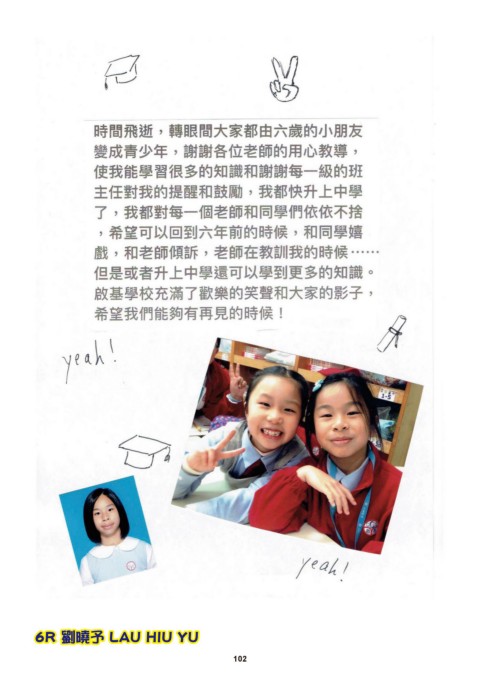 時間飛逝，轉眼間大家都由六歲的小朋友
變成青少年，謝謝各位老師的用心教導，
使我能學習很多的知識和謝謝每一級的班
主任對我的提醒和鼓勵，我都快升上中學
了，我都對每一個老師和同學們依依不捨
，希望可以回到六年前的時候，和同學嬉
戲，和老師傾訴，老師在教訓我的時候……
但是或者升上中學還可以學到更多的知識。
啟基學校充滿了歡樂的笑聲和大家的影子，
希望我們能夠有再見的時候！
yeah!
yeah!
6R 劉曉予 LAU HIU YU
102